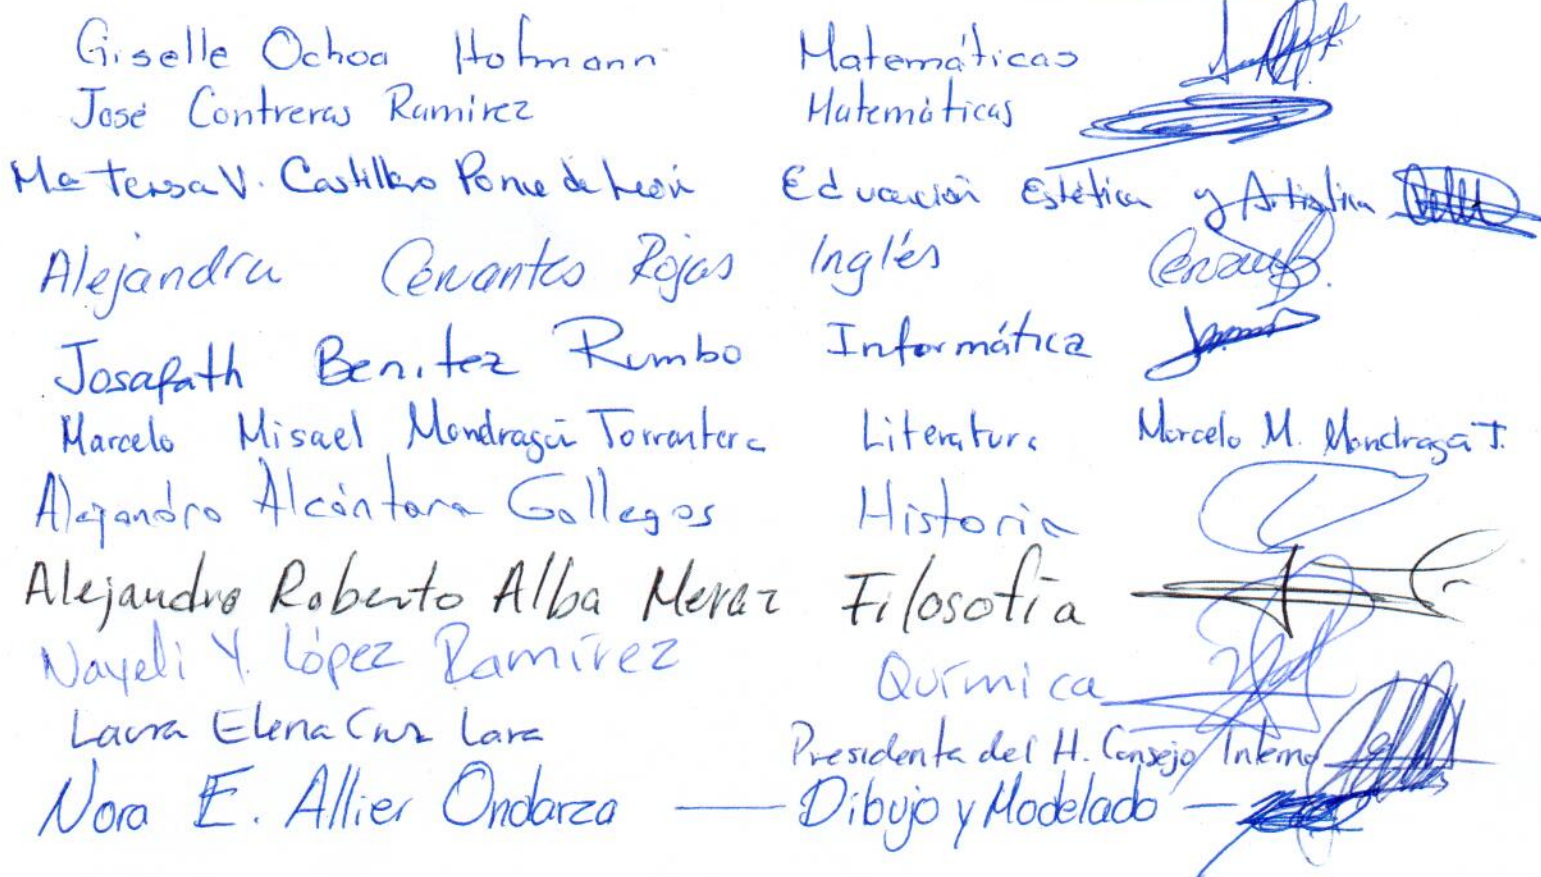 Giselle Ochoa Hofmann Matemáticas
José Contreras Ramírez Matemáticas
Ma Teresa V. Castillero Ponce de León Educación Estética y Artística
Alejandra Cervantes Rojas Inglés
Josafath Benitez Rumbo Informática
Marcelo Misael Mondragón Torrontera Literatura Marcelo M. Mondragón T.
Alejandro Alcántara Gallegos Historia
Alejandro Roberto Alba Meraz Filosofía
Nayeli Y. López Ramírez Química
Laura Elena Cruz Lara Presidenta del H. Consejo Interno
Nora E. Allier Ondarza — Dibujo y Modelado —